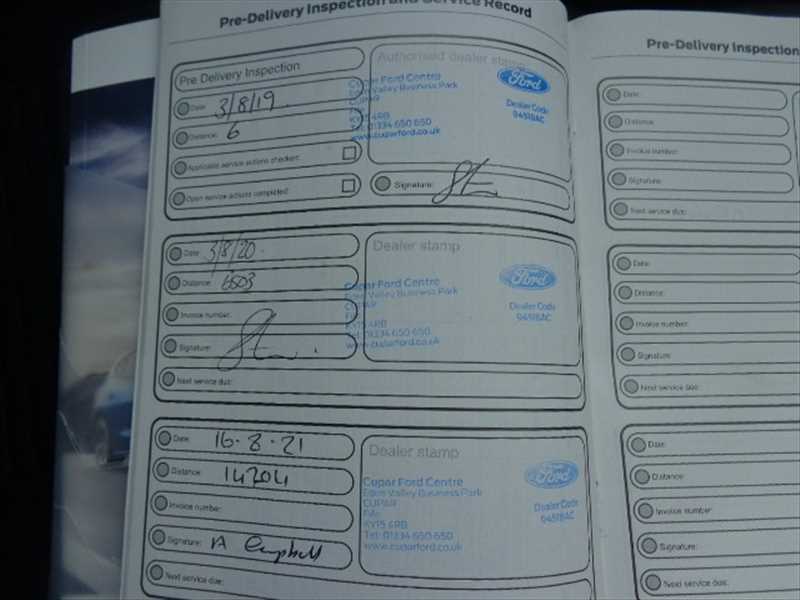 Pre-Delivery Inspection and Service Record
Pre Delivery Inspection
Date: 3/8/19
Distance: 6
Applicable service actions checked:
Open service actions completed:
Authorised dealer stamp
Cupar Ford Centre
Eden Valley Business Park
CUPAR
Fife
KY15 4RB
Tel: 01334 650 650
www.cuparford.co.uk
Ford
Dealer Code
04518AC
Signature:
Date: 3/8/20
Distance: 6503
Invoice number:
Signature:
Next service due:
Dealer stamp
Cupar Ford Centre
Eden Valley Business Park
CUPAR
Fife
KY15 4RB
Tel: 01334 650 650
www.cuparford.co.uk
Ford
Dealer Code
04518AC
Date: 16.8.21
Distance: 14204
Invoice number:
Signature: A Campbell
Next service due:
Dealer stamp
Cupar Ford Centre
Eden Valley Business Park
CUPAR
Fife
KY15 4RB
Tel: 01334 650 650
www.cuparford.co.uk
Ford
Dealer Code
04518AC
Pre-Delivery Inspection
Date:
Distance:
Invoice number:
Signature:
Next service due:
Date:
Distance:
Invoice number:
Signature:
Next service due:
Date:
Distance:
Invoice number:
Signature:
Next service due: